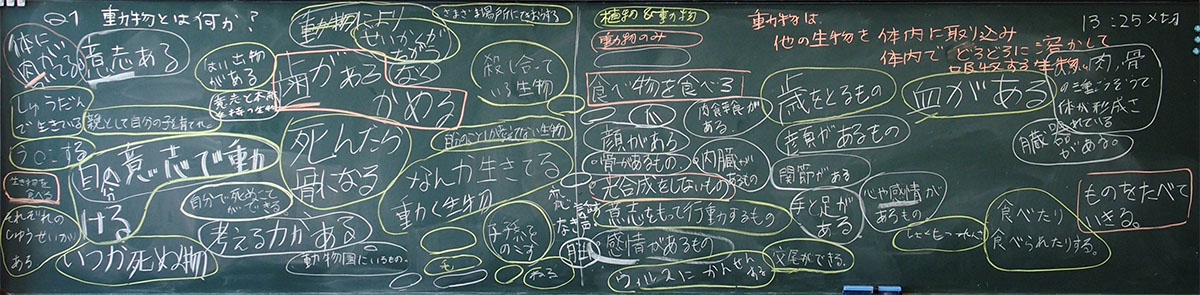 Q1 動物とは何か?
体に
意志ある
しゅうだん
で生きている
親として自分の子を育てる
う〇こする
自分意志で動
ける
それぞれの
しゅうせいが
ある
いつか死ぬ物
動物により
せいかくが
ちがう
歯がある
など
かめる
死んだら
骨になる
自分で死ぬことができる
考える力がある
動物園にいるもの。
殺し合って
いる生物
なんか生きてる
動く生物
子孫を
のこす
毛
ねる
植物&動物
動物のみ
食べ物を食べる
肉食草食が
ある。
顔がある
骨があるもの
内臓が
あるもの
光合成をしないもの
意志をもって行動するもの
感情があるもの
ウィルスにかんせんする
交尾ができる。
動物は、
他の生物を体内に取り込み
体内でどろどろに溶かして
吸収する生物。
13:25〆切
歳をとるもの
産卵があるもの
関節がある
手と足が
ある
心や感情が
あるもの。
血がある
肉、骨
体が形成さ
れている
臓器がある。
しょくもつれんさ
食べたり
食べられたりする。
ものをたべて
いきる。